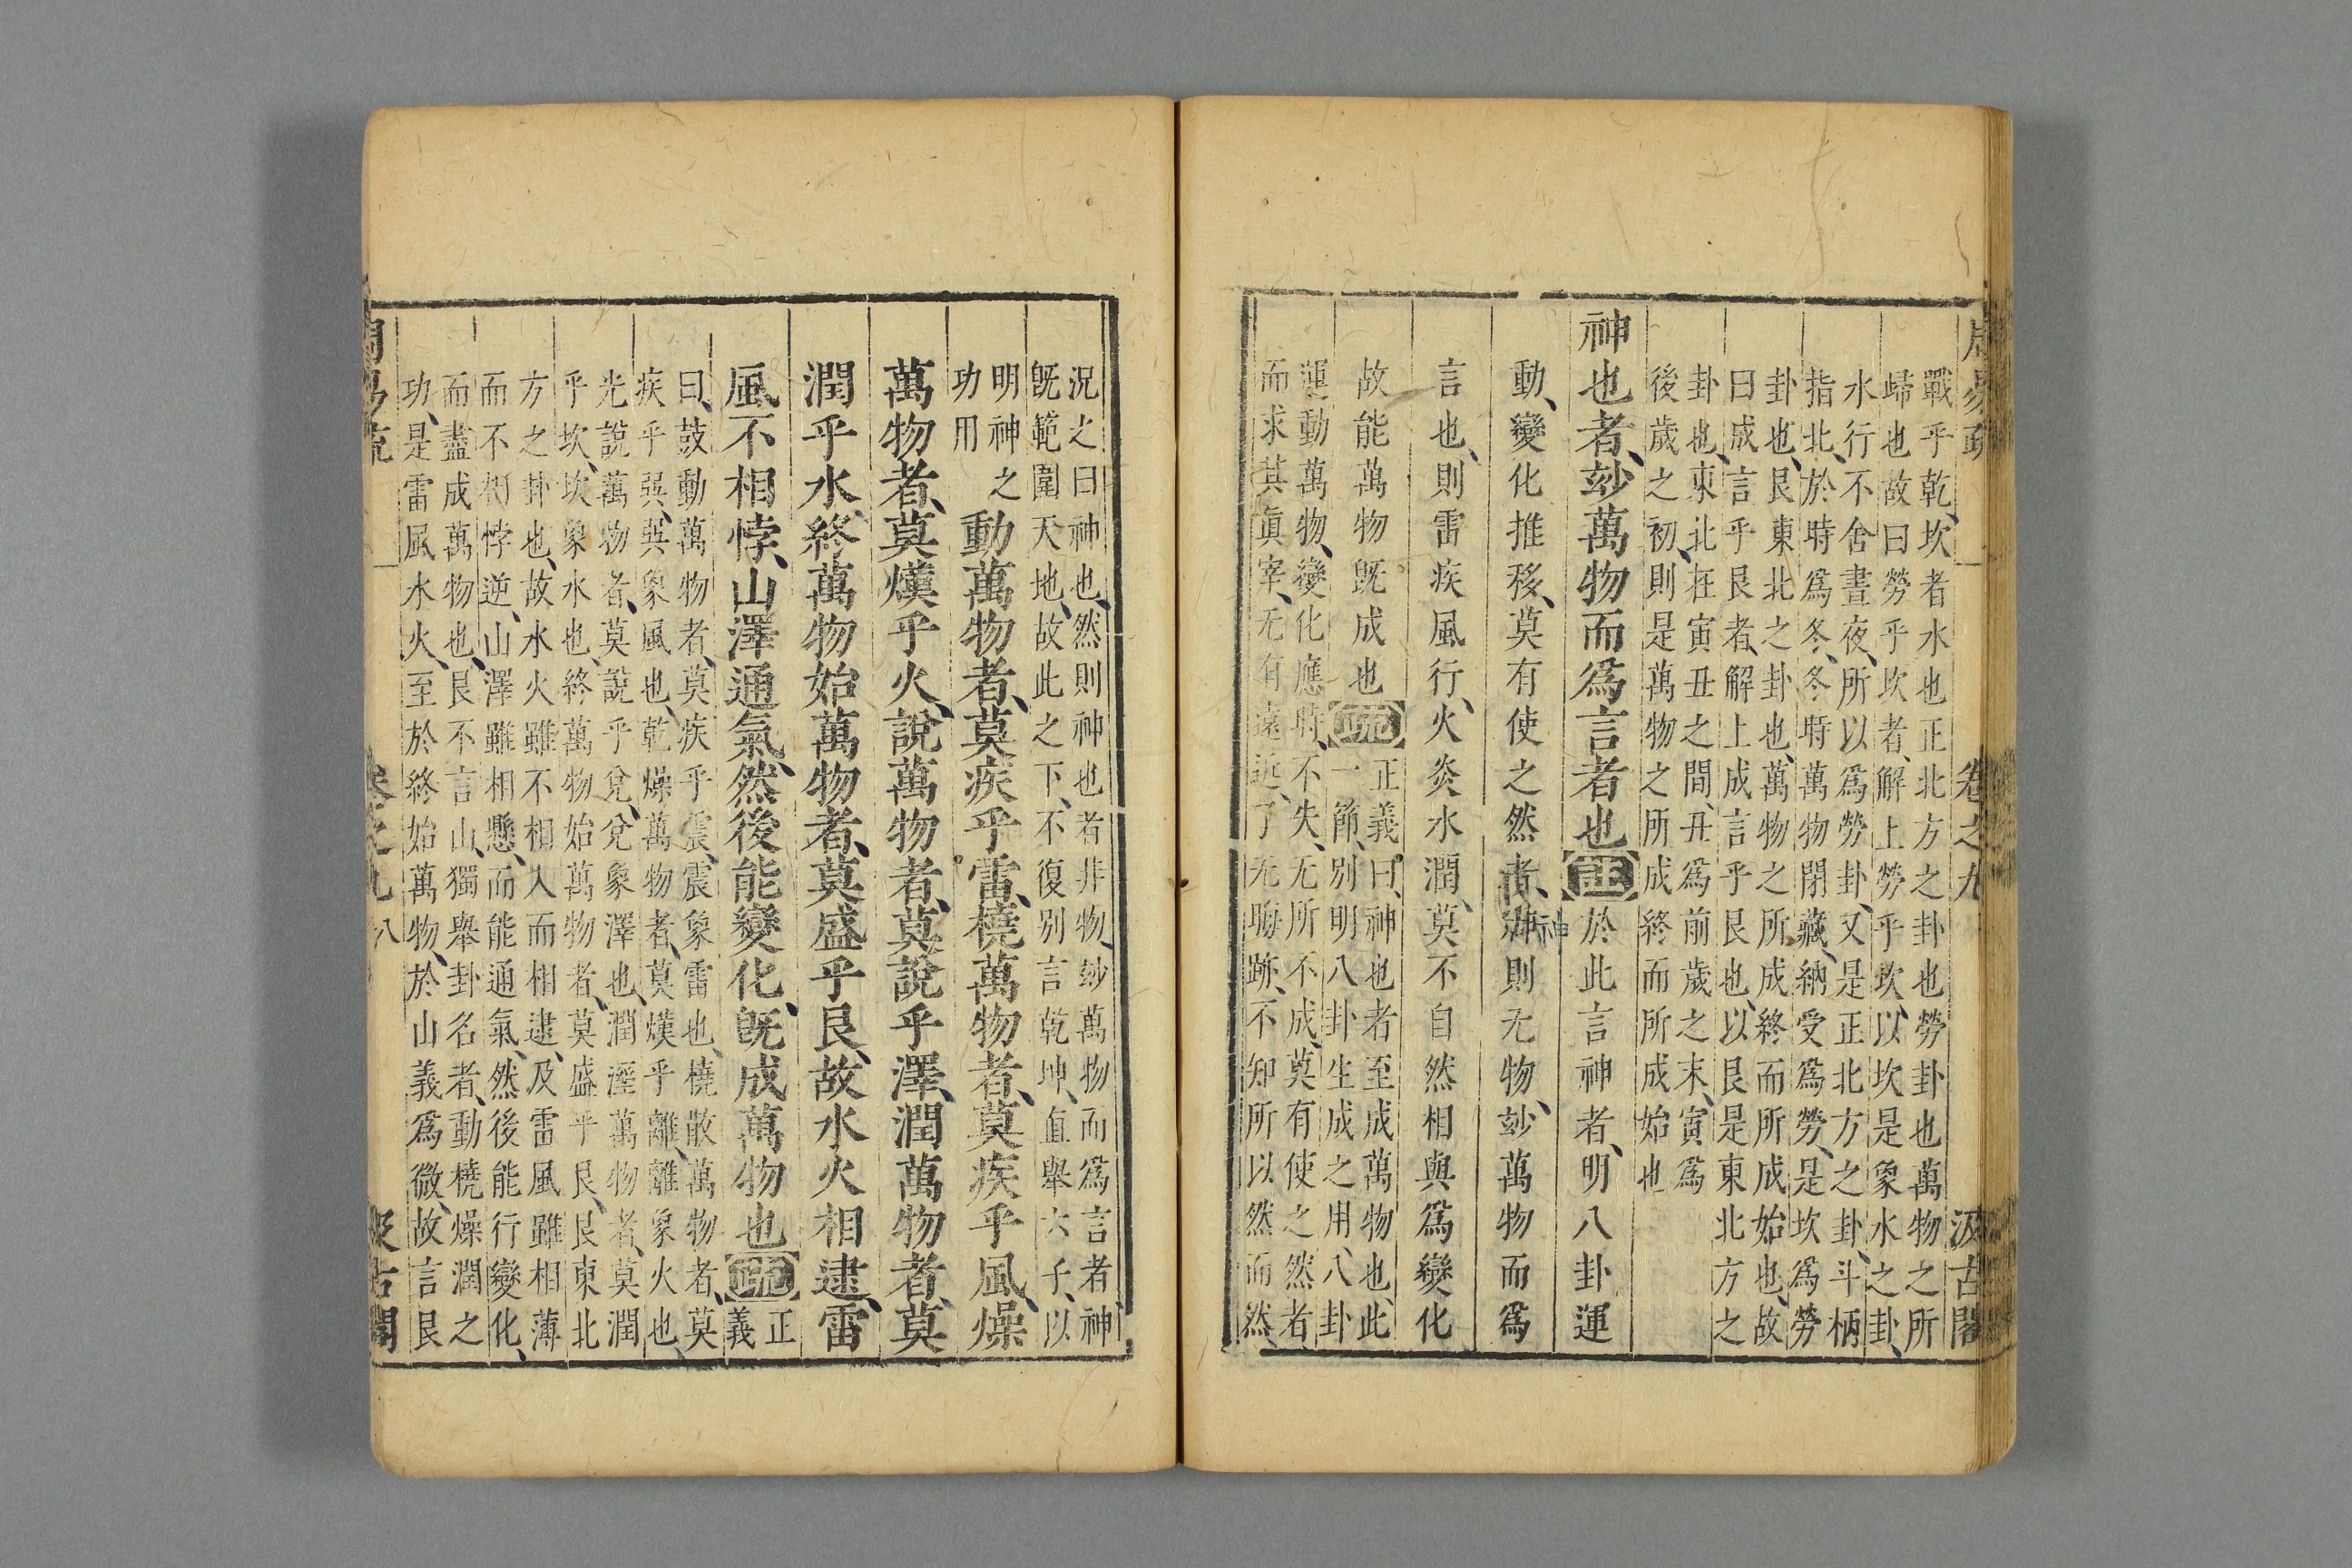 周易疏 卷之九 汲古閣
戰乎乾、坎者水也正北方之卦也勞卦也萬物之所
歸也故曰勞乎坎者、解上勞乎坎、以坎是象水之卦、
水行不舍晝夜、所以爲勞卦、又是正北方之卦、斗柄
指北、於時爲冬、冬時萬物閉藏、納受爲勞、是坎爲勞
卦也、艮東北之卦也、萬物之所成終而所成始也、故
曰成言乎艮者、解上成言乎艮也、以艮是東北方之
卦也、東北在寅丑之間、丑爲前歲之末、寅爲
後歲之初、則是萬物之所成終而所成始也
神也者、玅萬物而爲言者也註於此言神者、明八卦運
動、變化推移、莫有使之然者、神則无物、玅萬物而爲
言也、則雷疾風行、火炎水潤、莫不自然相與爲變化
故能萬物旣成也疏
正義曰、神也者至成萬物也、此
一節、別明八卦生成之用、八卦
運動萬物、變化應時、不失、无所不成、莫有使之然者
而求其眞宰、无有遠近、了无晦跡、不知所以然而然、
況之曰神也、然則神也者非物、玅萬物而爲言者神
旣範圍天地、故此之下、不復別言乾坤、直舉六子、以
明神之
功用
動萬物者、莫疾乎雷、橈萬物者、莫疾乎風、燥
萬物者、莫熯乎火、說萬物者、莫說乎澤、潤萬物者、莫
潤乎水、終萬物始萬物者、莫盛乎艮、故水火相逮、雷
風不相悖、山澤通氣、然後能變化、旣成萬物也疏
正
義
曰、鼓動萬物者、莫疾乎震、震象雷也、橈散萬物者、莫
疾乎巽、巽象風也、乾燥萬物者、莫熯乎離、離象火也、
光說萬物者、莫說乎兌、兌象澤也、潤溼萬物者、莫潤
乎坎、坎象水也、終萬物始萬物者、莫盛乎艮、艮東北
方之卦也、故水火雖不相入而相逮、及雷風雖相薄
而不相悖逆、山澤雖相懸、而能通氣、然後能行變化、
而盡成萬物也、艮不言山、獨舉卦名者、動橈燥潤之
功、是雷風水火、至於終始萬物、於山義爲微、故言艮
周易疏 卷之九 八 汲古閣